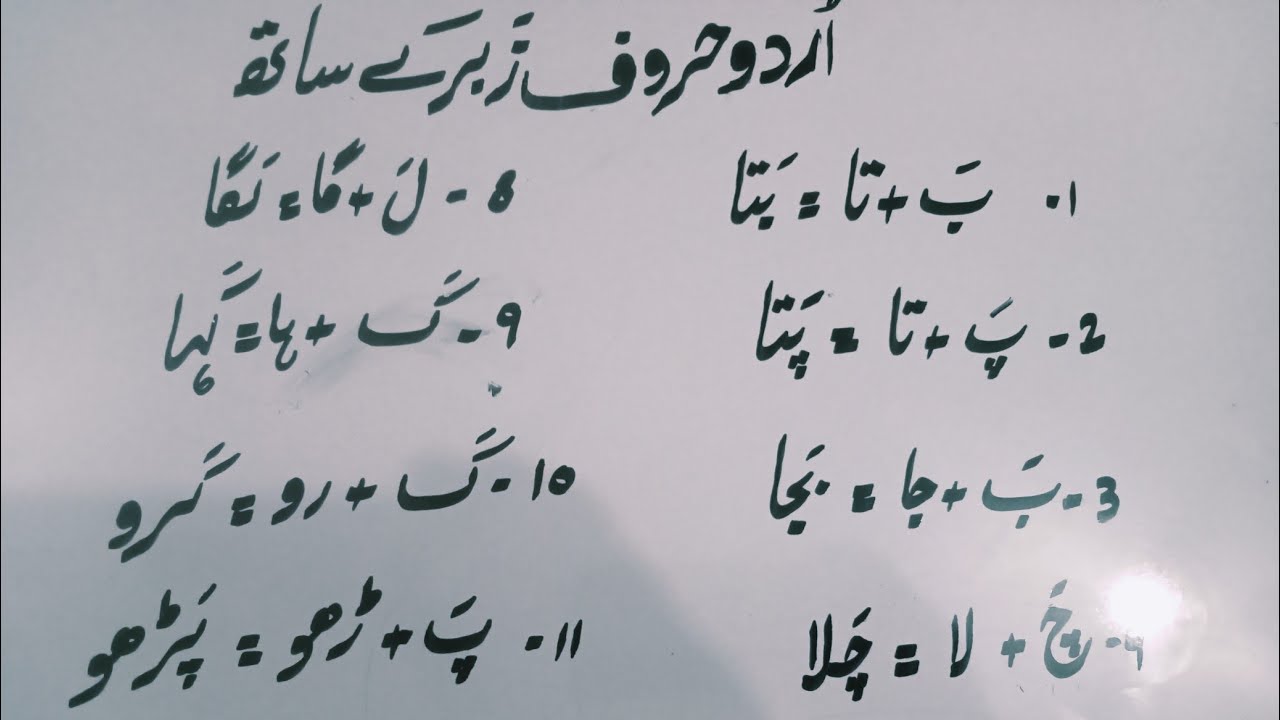 اُردو حروف زَبر کے ساتھ
1- بَ + تا = بَتا
2- پَ + تا = پَتا
3- بَ + جا = بَجا
4- چَ + لا = چَلا
8- لَ + گا = لَگا
9- کَ + ہا = کَہا
10- کَ + رو = کَرو
11- پَ + ڑھو = پَڑھو